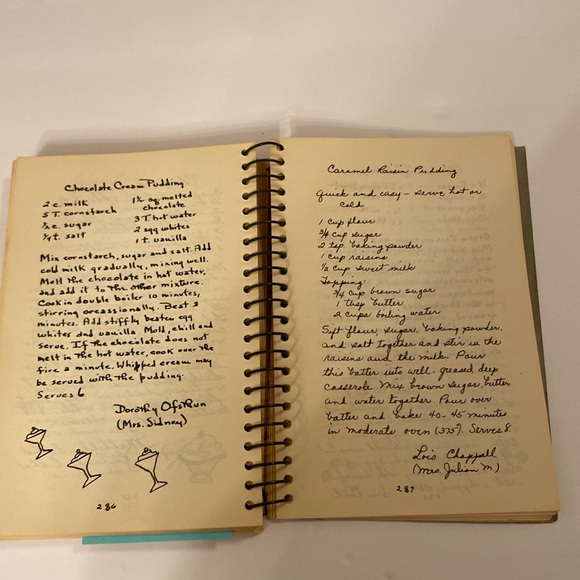 Chocolate Cream Pudding
2 c. milk
5 T. cornstarch
½ c. sugar
¼ t. salt
1½ oz melted
chocolate
3 T. hot water
2 egg whites
1 t. vanilla
Mix cornstarch, sugar and salt. Add
cold milk gradually, mixing well.
Melt the chocolate in hot water,
and add it to the other mixture.
Cook in double boiler 10 minutes,
stirring occassionally. Beat 3
minutes. Add stiffly beaten egg
whites and vanilla. Mold, chill and
serve. If the chocolate does not
melt in the hot water, cook over the
fire a minute. Whipped cream may
be served with the pudding.
Serves 6
Dorothy
(Mrs. Sidney)
286
Caramel Raisin Pudding
Quick and easy - serve hot or
cold
1 cup flour
¾ cup sugar
2 tsp. baking powder
1 cup raisins
½ cup sweet milk
Topping:
¾ cup brown sugar
1 tbsp butter
2 cups boiling water
Sift flour, sugar, baking powder,
and salt together and stir in the
raisins and the milk. Pour
this batter into well-greased deep
casserole. Mix brown sugar, butter
and water together. Pour over
batter and bake 40-45 minutes
in moderate oven (375°). Serves 8.
Lois Chappell
(Mrs. Julian M.)
287